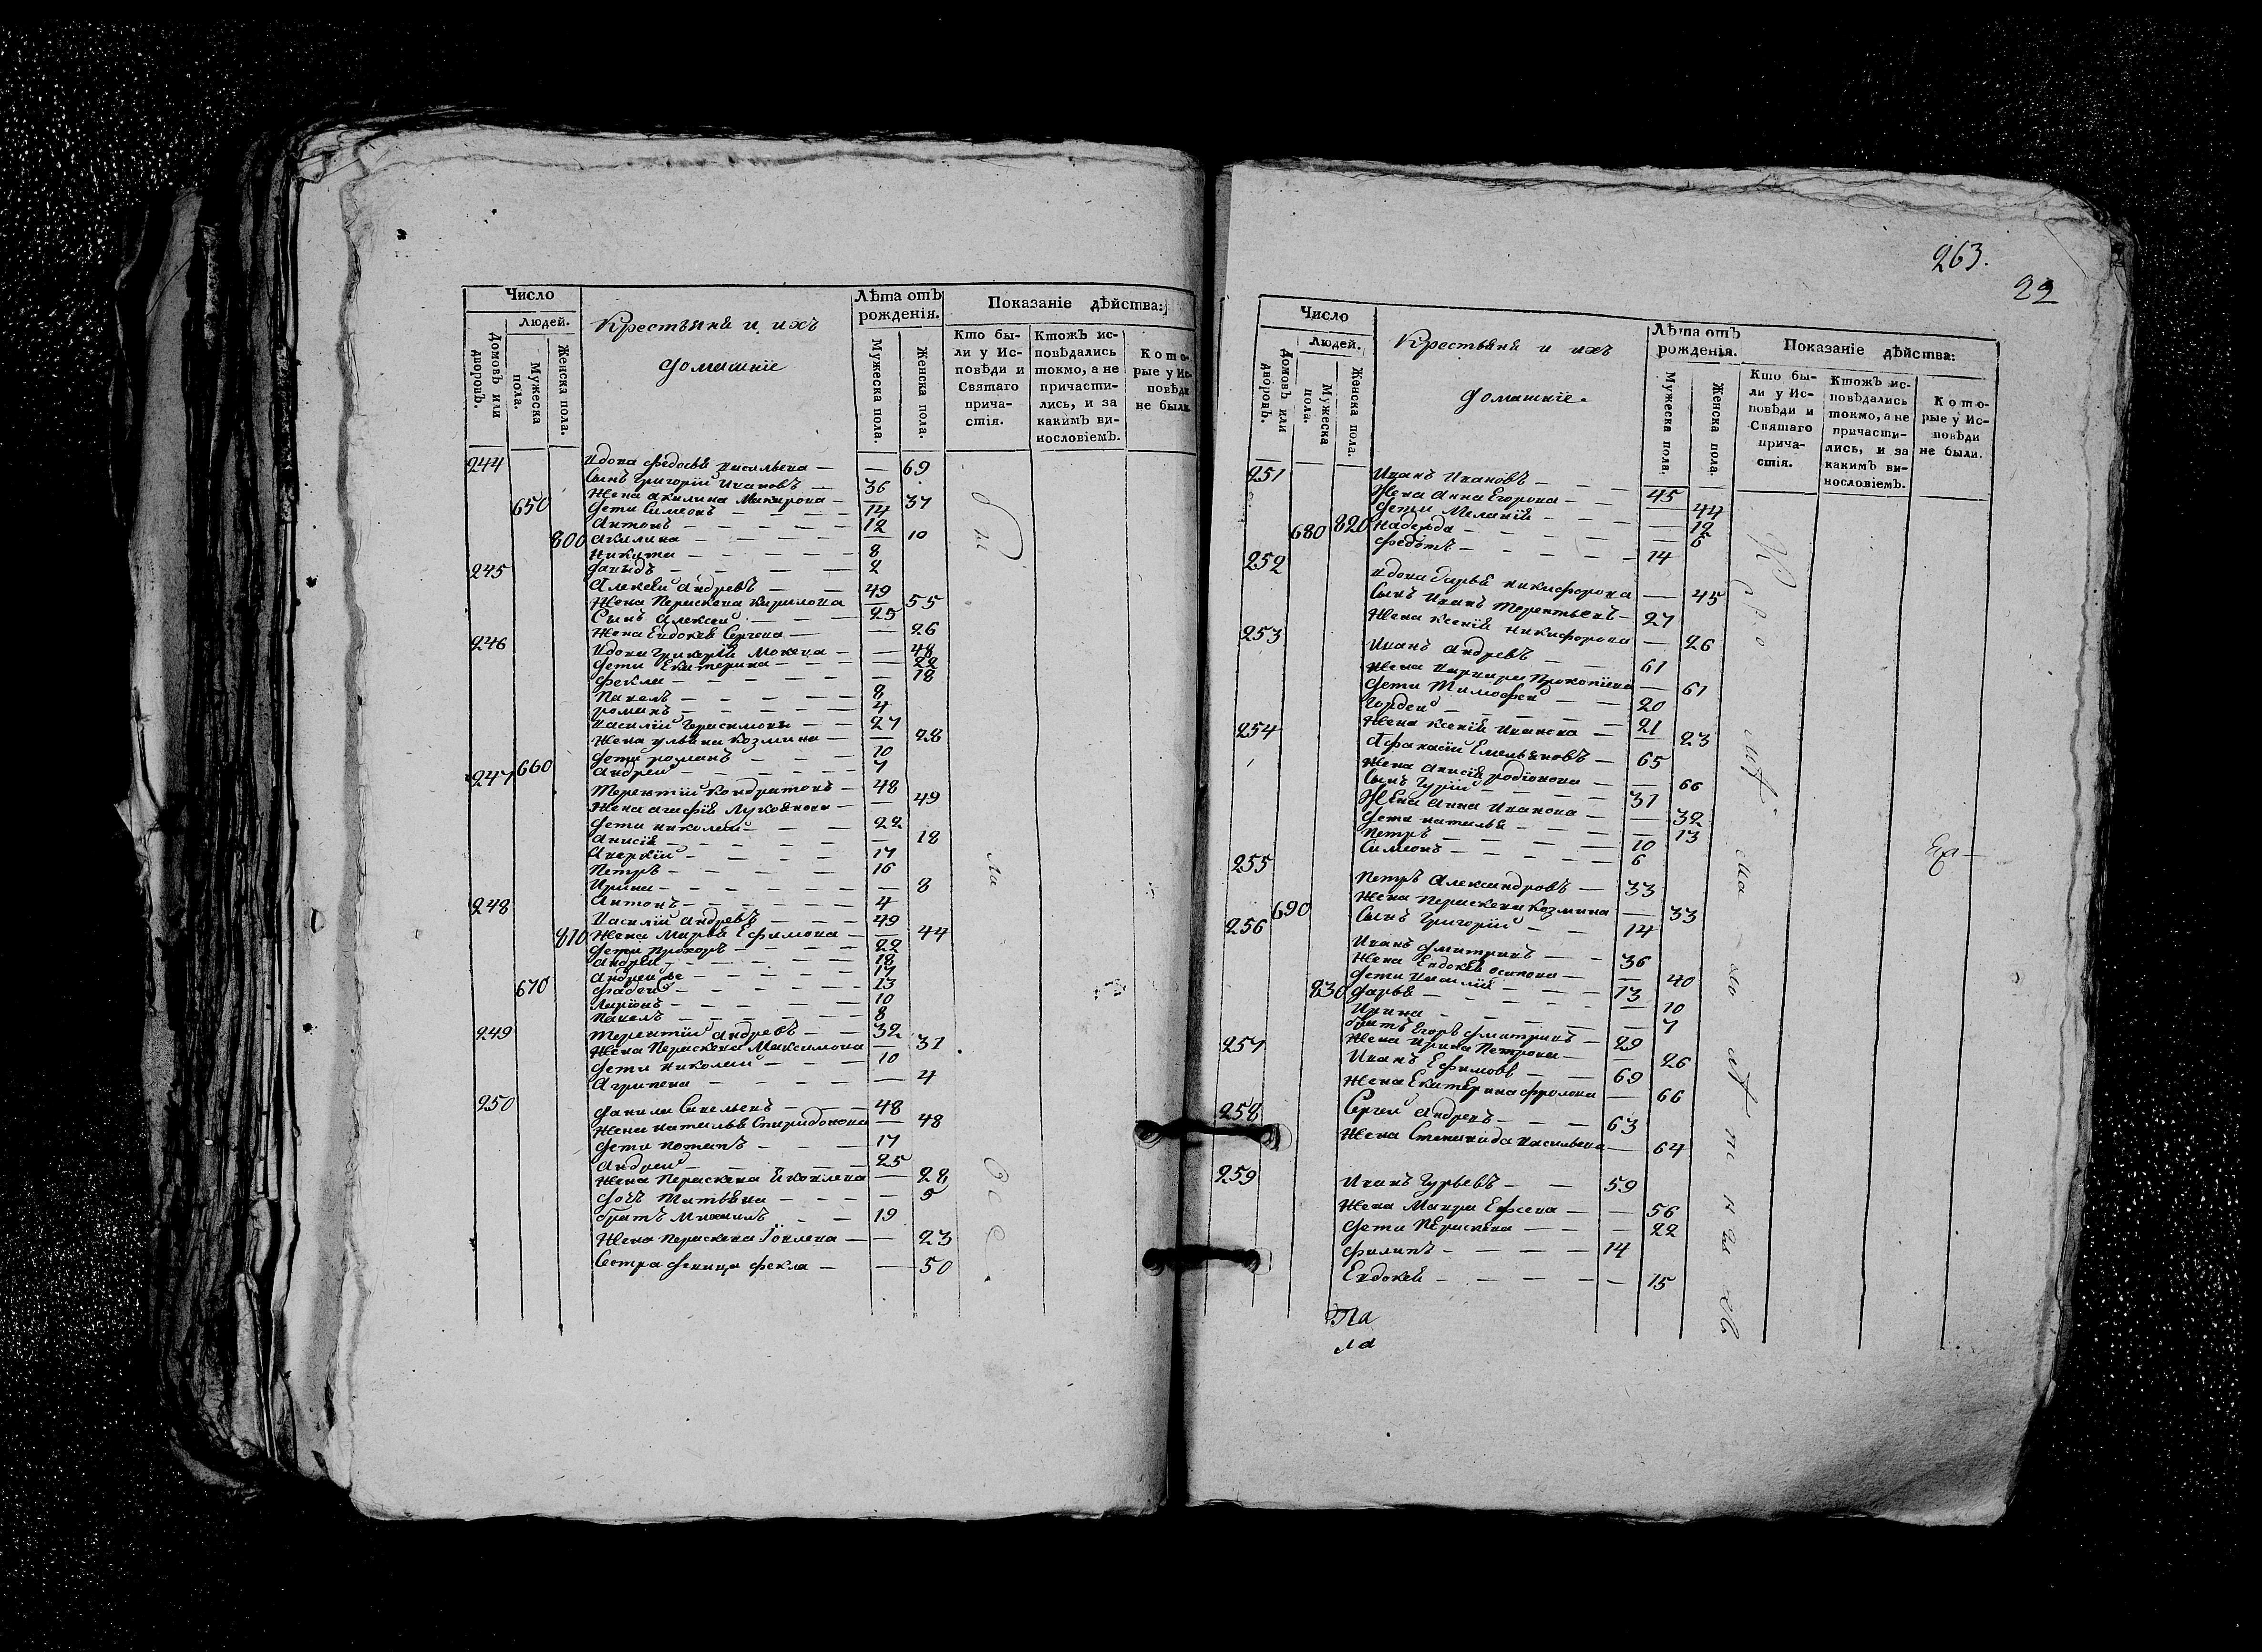 Число
Людей.
Домовъ или дворовъ.
Мужеска пола.
Женска пола.
Крестьянѣ и ихъ
домашніе
Лѣта отъ рожденія.
Мужеска пола.
Женска пола.
Показаніе дѣйства:
Кто были у Исповѣди и Святаго причастія.
Ктожъ исповѣдались токмо, а не причастились, и за какимъ винословіемъ.
Которые у Исповѣди не были.
244 вдова федосья васильева — — 69
Сынъ Григорій Ивановъ — 36
жена акилина Макарова — — 37
650 дети Симеонъ — 14
Антонъ — 12
800 акилина — — 10
Никита — 8
давыдъ — 2
245 Алексей Андревъ — 49
жена Параскева Кирилова — 55
Сынъ Алексей — 25
жена Евдокея Сергева — — 26
246 вдова Гликерія Мокева — — 48
дети Екатерина — — 22
фекла — — 18
Павелъ — 8
романъ — 4
василій Герасимовъ — 27
жена ульяна козмина — — 28
дети романъ — 10
660 андрей — 7
247 Терентій Кондратовъ — 48
жена агафія Лукоянова — — 49
дети николай — 22
Анисія — — 18
Аверкій — 17
Петръ — 16
Ирина — — 8
Антонъ — 4
248 василій андревъ — 49
810 жена Марья Ефимова — — 44
дети Прохоръ — 22
андрей — 18
андрей же — 17
670 фадей — 13
Ларіонъ — 10
Павелъ — 8
249 терентій андревъ — 32
жена Параскева Максимова — 31
дети николай — 10
Агрипена — — 4
250 данила Савельевъ — 48
жена наталья Спиридонова — 48
дети потапъ — 17
андрей — 25
жена Параскева Яковлева — 28
дочь татьяна — — 5
братъ михаилъ — 19
жена Параскева Іовлева — — 23
Сестра девица фекла — — 50
263.
22
Число
Людей.
Домовъ или дворовъ.
Мужеска пола.
Женска пола.
Крестьянѣ и ихъ
домашніе.
Лѣта отъ рожденія.
Мужеска пола.
Женска пола.
Показаніе дѣйства:
Кто были у Исповѣди и Святаго причастія.
Ктожъ исповѣдались токмо, а не причастились, и за какимъ винословіемъ.
Которые у Исповѣди не были.
251 Иванъ Ивановъ — 45
жена Анна Егорова — — 44
дети Меланія — — 12
680 820 надежда — — 6
федотъ — 14
252 вдова дарья никифорова — 45
Сынъ Иванъ Терентьевъ — 27
жена ксенія никифорова — 26
253 Иванъ Андревъ — 61
жена варвара Прокопіева — 61
дети Тимофей — 20
Гордей — 21
жена ксенія Иванова — — 23
254 Афанасій Емельяновъ — 65
жена анисія родіонова — — 66
Сынъ Гурій — 31
жена анна Иванова — — 32
дети наталья — — 13
Петръ — 10
Симеонъ — 6
255 Петръ Александровъ — 33
жена Параскева козмина — 33
690 Сынъ Григорій — 14
256 Иванъ дмитривъ — 36
жена Евдокея осипова — — 40
дети василій — 13
830 дарья — — 10
Ирина — — 7
братъ Егоръ дмитривъ — 29
жена Ирина Петрова — — 26
257 Иванъ Ефимовъ — 69
жена Екатерина фролова — 66
258 Сергей андревъ — 63
жена Степанида васильева — 64
259 Иванъ Гурьевъ — 59
жена Мавра Евсева — — 56
дети Параскева — — 22
филипъ — 14
Евдокея — — 15